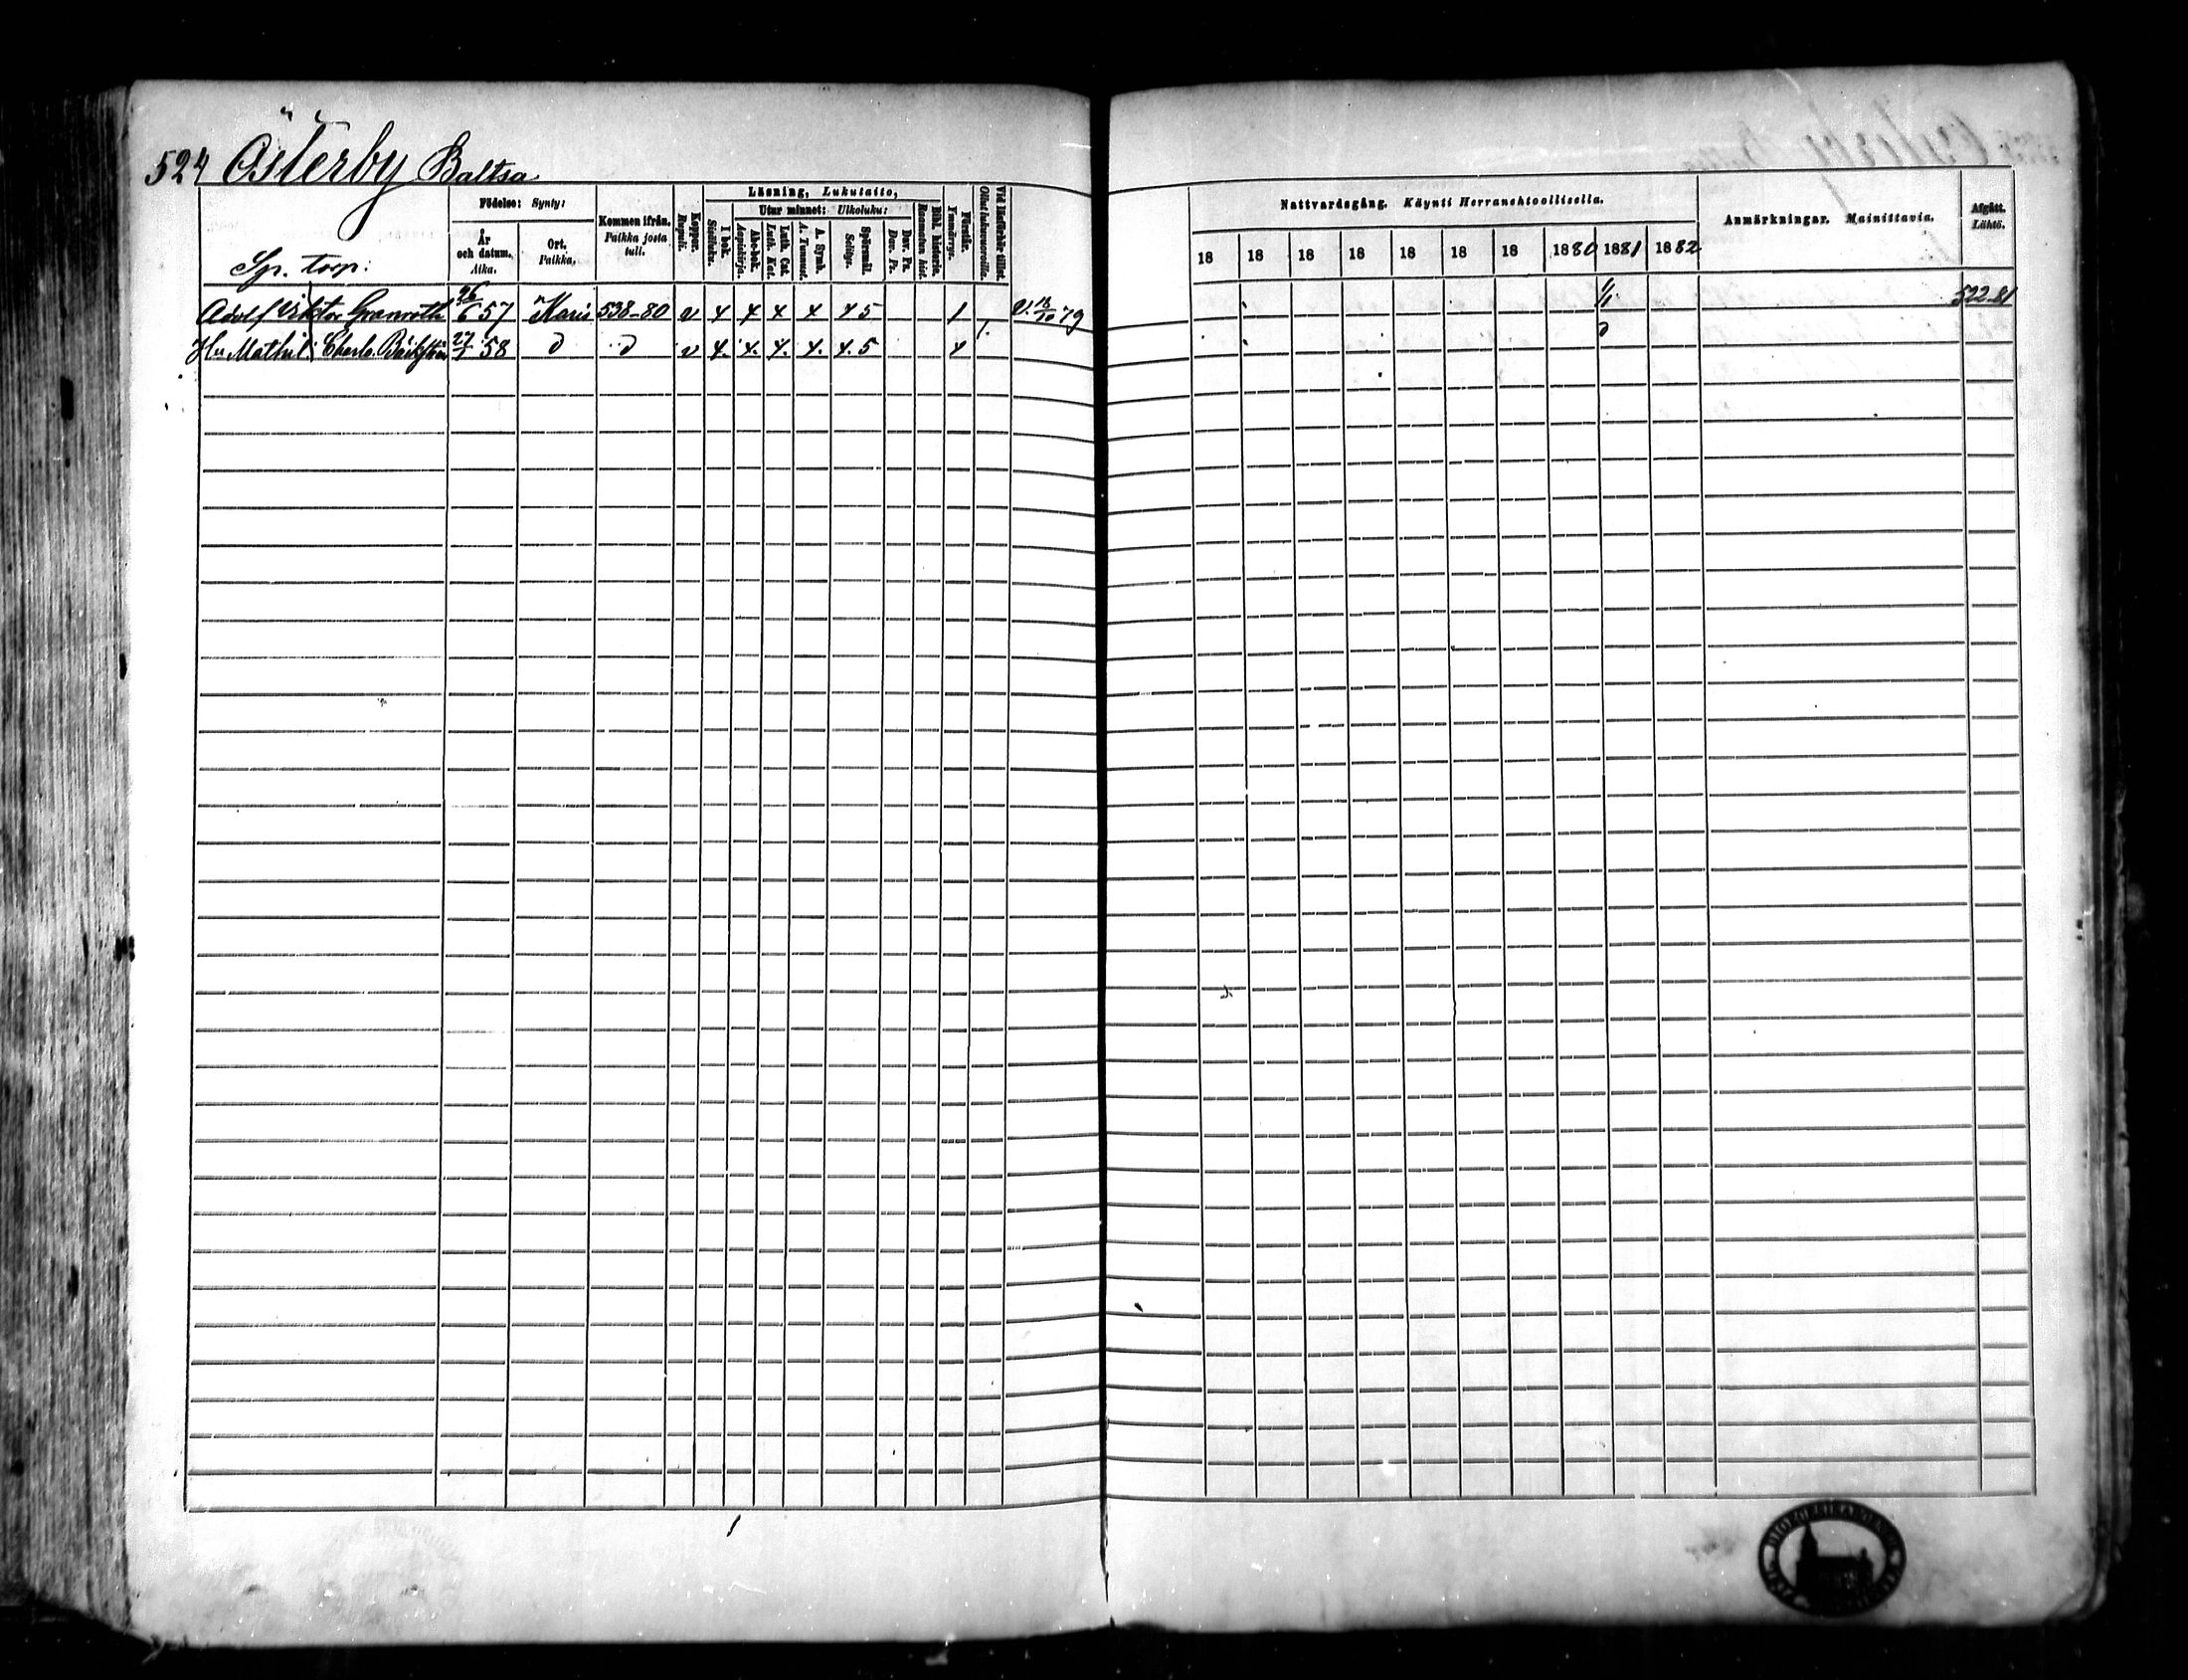 524 Österby Baltsa
Födelse: Synty:
Kommen ifrån. Paikka josta tuli.
Koppor. Rupuli.
Läsning, Lukutaito,
Utur minnet: Ulkoluku:
År och datum. Aika.
Ort. Paikka.
I bok. Sisäluku.
Ab-bok. Aapiskirja.
Luth. Cat. Luth. Kat.
A. Symb. A. Tunnust.
Spörsmål. Selitys.
Dav. Ps. Dav. Ps.
Bibl. historia. Raamatun hist.
Förstår. Ymmärrys.
Vid läsförhör tillst. Ollut lukuvuoroilla.
Nattvardsgång. Käynti Herranehtoollisella.
Anmärkningar. Mainittavia.
Afgått. Lähtö.
18 18 18 18 18 18 18 1880 1881 1882
Sp. torp:
Adolf Viktor Granroth 26/6 57 Karis 538-80 v 4 4 4 4 4 5 1 V. 18/10 79 1/1 522-81
Hu Mathil Charl. 58 d d v 4. 4. 4. 4. 4. 5 4 1. d